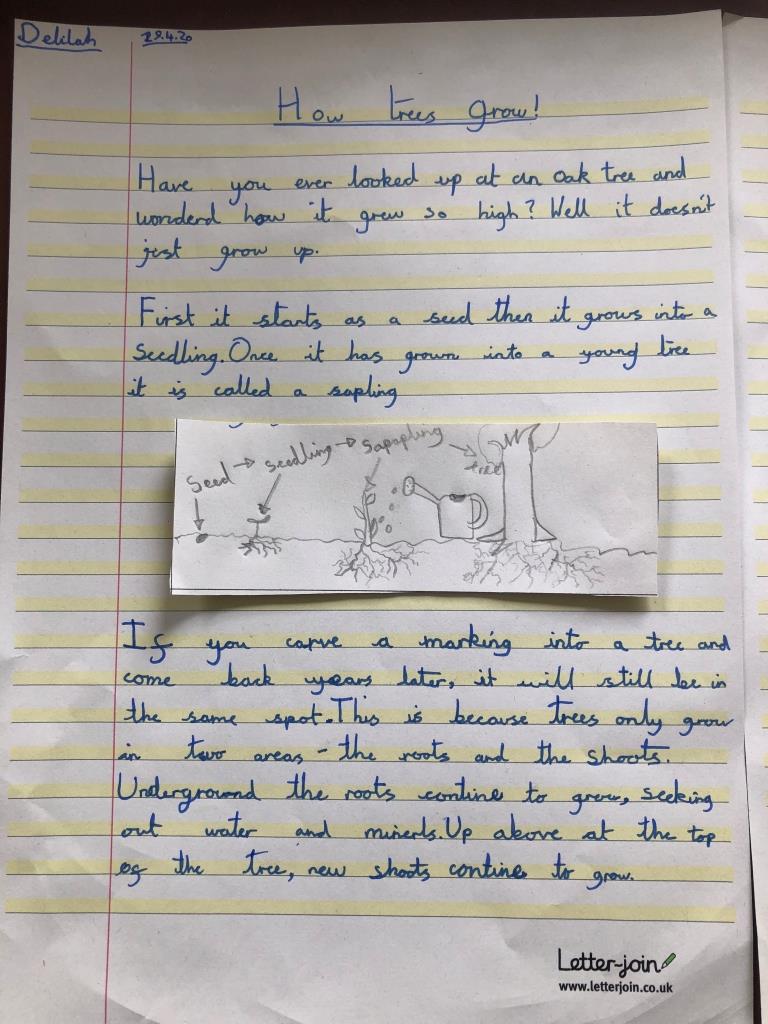 Delilah 29.4.20
How trees grow!
Have you ever looked up at an oak tree and
wonderd how it grew so high? Well it doesn't
just grow up.
First it starts as a seed then it grows into a
seedling. Once it has grown into a young tree
it is called a sapling
Seed → seedling → sapapling → tree
If you carve a marking into a tree and
come back years later, it will still be in
the same spot. This is because trees only grow
in two areas - the roots and the shoots.
Underground the roots contine to grow, seeking
out water and minerls. Up above at the top
of the tree, new shoots contine to grow.
Letter-join
www.letterjoin.co.uk